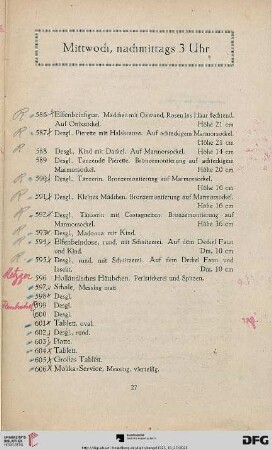 Mittwoch, nachmittags 3 Uhr
586 Elfenbeinfigur. Mädchen mit Gewand, Rosen ins Haar flechtend.
Auf Onyxsockel. Höhe 21 cm
587 Desgl. Pierette mit Halskrause. Auf achteckigem Marmorsockel.
Höhe 21 cm
588 Desgl. Kind mit Dackel. Auf Marmorsockel. Höhe 14 cm
589 Desgl. Tanzende Pierette. Bronzemontierung auf achteckigem
Marmorsockel. Höhe 20 cm
590 Desgl. Tänzerin. Bronzemontierung auf Marmorsockel.
Höhe 16 cm
591 Desgl. Kleines Mädchen. Bronzemontierung auf Marmorsockel.
Höhe 16 cm
592 Desgl. Tänzerin mit Castagnetten. Bronzemontierung auf
Marmorsockel. Höhe 16 cm
593 Desgl. Madonna mit Kind.
594 Elfenbeindose, rund, mit Schnitzerei. Auf dem Deckel Faun
und Kind. Dm. 10 cm
595 Desgl. rund, mit Schnitzerei. Auf dem Deckel Faun und
Dm. 10 cm
596 Holländisches Häubchen. Perlstickerei und Spitzen.
597 Schale, Messing matt
598 Desgl.
599 Desgl.
600 Desgl.
601 Tablett, oval.
602 Desgl., rund.
603 Platte.
604 Tablett.
605 Großes Tablett.
606 Mokka-Service, Messing, vierteilig.
27